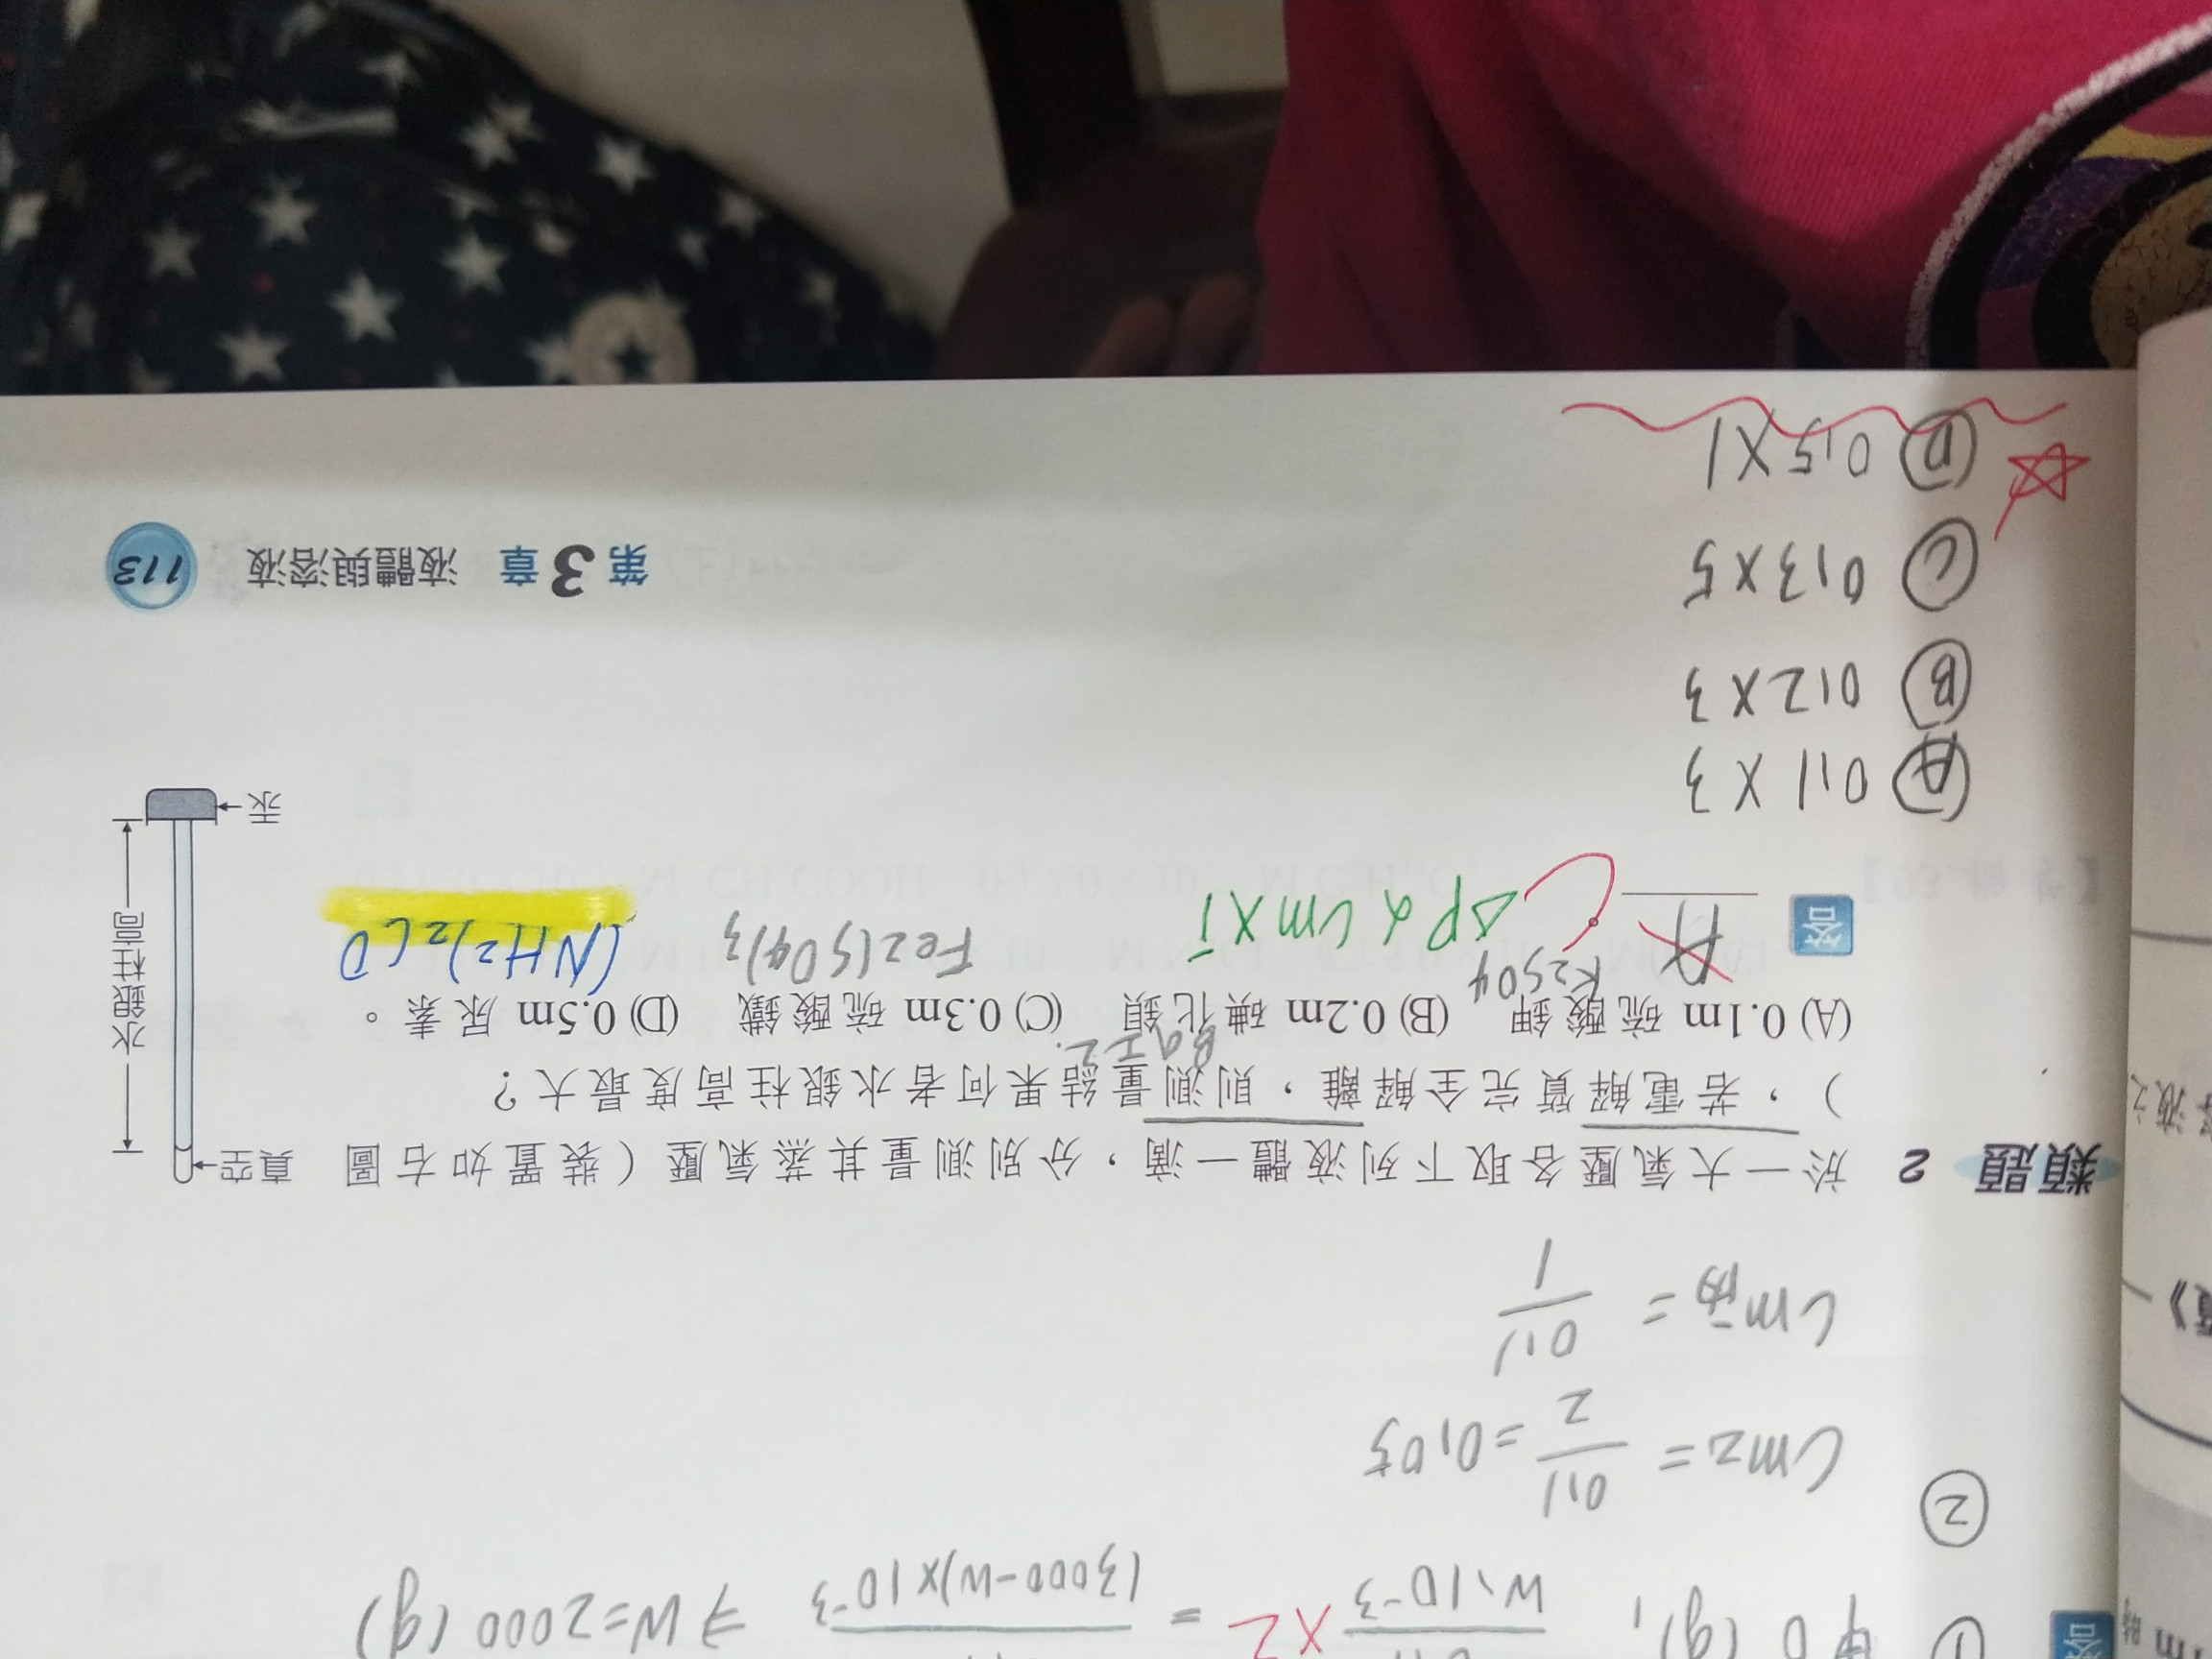 答
① 甲 0 (g),
W×10⁻³ ×2 = (3000-W)×10⁻³ ⇒ W=2000 (g)
②
Cm2 = 0.1/2 = 0.05
= 0.1/1
類題 2 於一大氣壓各取下列液體一滴,分別測量其蒸氣壓(裝置如右圖
),若電解質完全解離,則測量結果何者水銀柱高度最大?
BaI2
(A) 0.1m 硫酸鉀 (B) 0.2m 碘化鋇 (C) 0.3m 硫酸鐵 (D) 0.5m 尿素。
K2SO4 Fe2(SO4)3 (NH2)2CO
答 A C ΔP α Cm×i
真空
水銀柱高
汞
Ⓐ 0.1 × 3
Ⓑ 0.2 × 3
Ⓒ 0.3 × 5
Ⓓ 0.5 × 1
第3章 液體與溶液 113